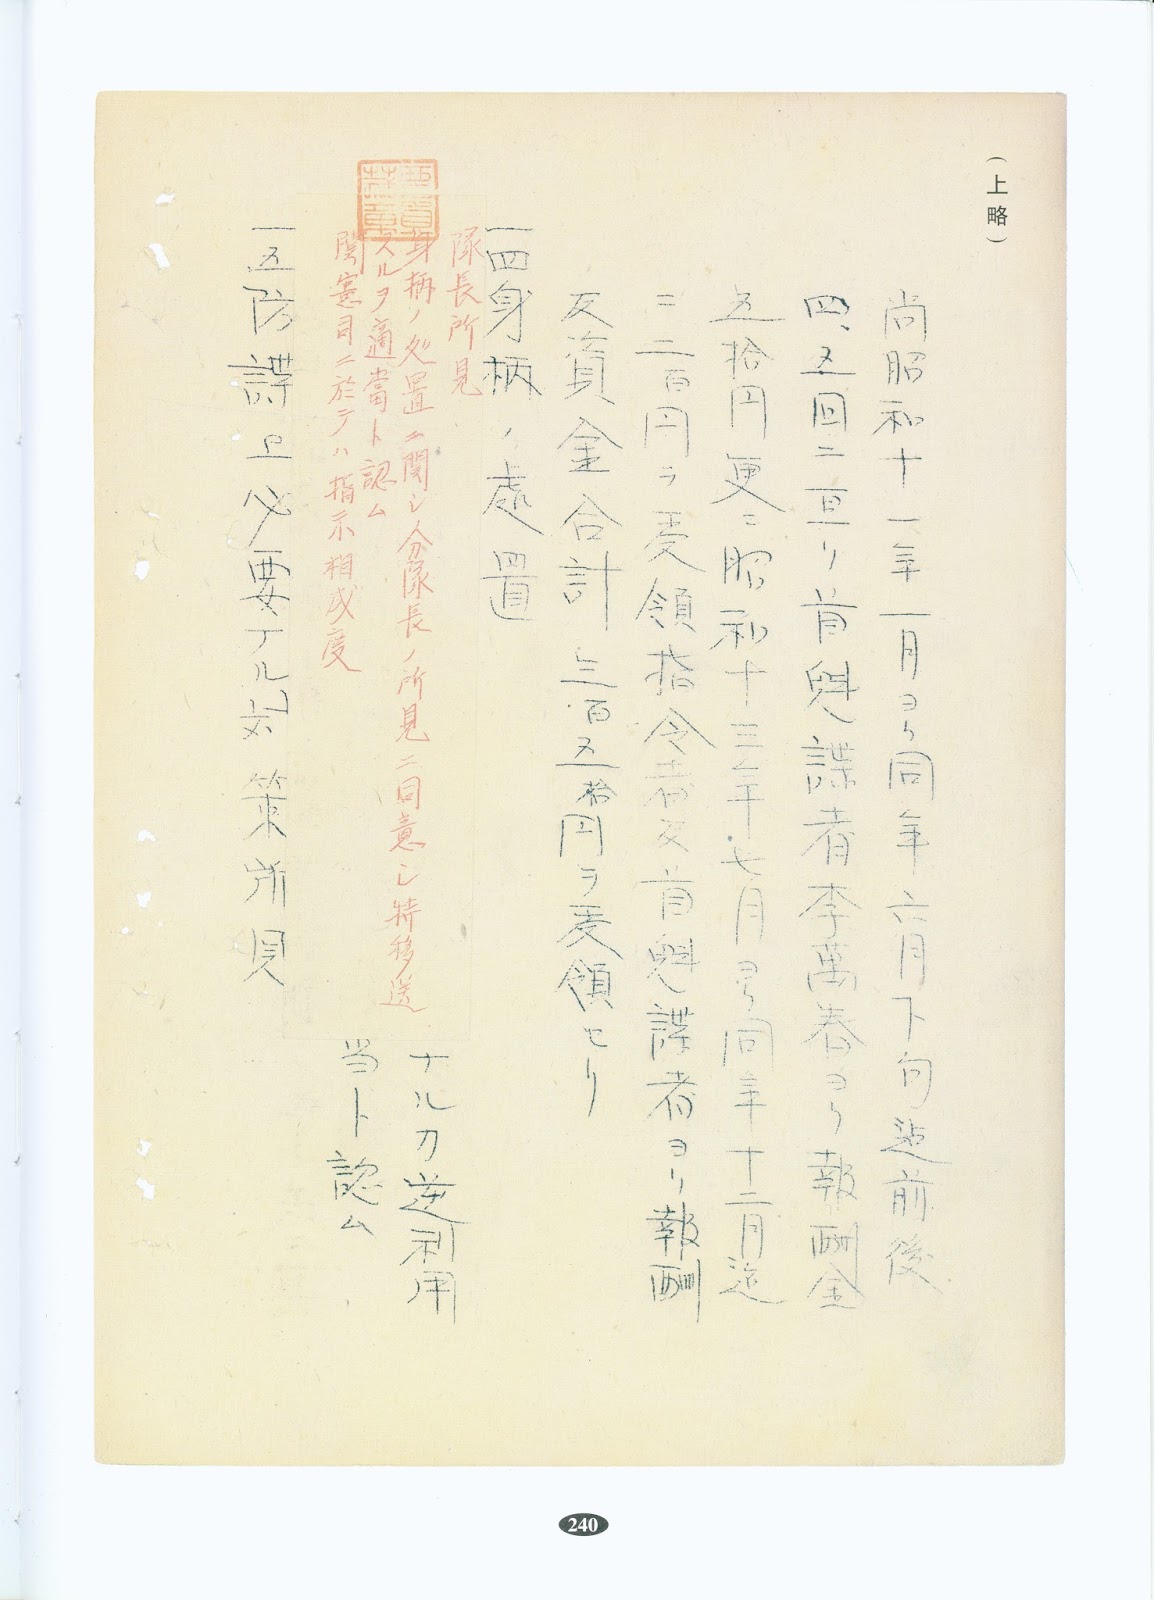 （上略）
尚昭和十一年一月ヨリ同年六月下旬迄前後
四、五回ニ亘リ首魁諜者李萬春ヨリ報酬金
五拾円更ニ昭和十三年七月ヨリ同年十二月迄
ニ二百円ヲ受領指令者及首魁諜者ヨリ報酬
及資金合計 百五拾円ヲ受領セリ
一四身柄ノ處置
隊長所見
身柄ノ処置ニ関シ分隊長ノ所見ニ同意シ特移送
スルヲ適當ト認ム
関憲司ニ於テハ指示相成度
ナル刀逆利用
当ト認ム
一五防諜上必要ナル対策所見
240